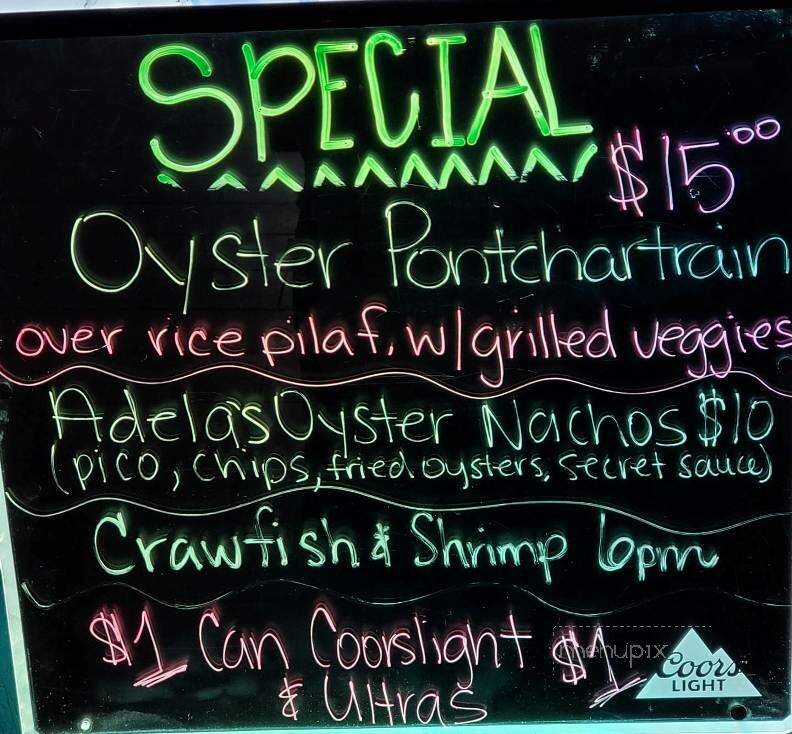 SPECIAL
$15.00
Oyster Pontchartrain
over rice pilaf, w/grilled veggies
Adela's Oyster Nachos $10
(pico, chips, fried oysters, secret sauce)
Crawfish & Shrimp 6pm
$1 Can Coorslight $1
& Ultras
menupix
Coors
LIGHT